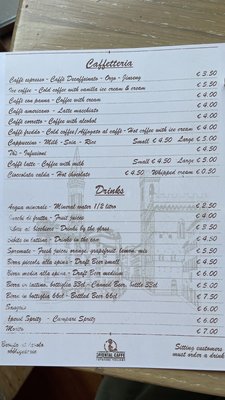 Caffetteria
Caffè espresso - Caffè Decaffeinato - Orzo - Jinseng € 3.50
Ice coffee - Cold coffee with vanilla ice cream & cream € 5.00
Caffè con panna - Coffee with cream € 4.00
Caffè americano - Latte macchiato € 4.00
Caffè corretto - Coffee with alcohol € 4.00
Caffè freddo - Cold coffee / Affogato al caffè - Hot coffee with ice cream € 4.00
Cappuccino - Milk - Soia - Rice Small € 4.50 Large € 5.00
Thè - Infusioni € 4.50
Caffè latte - Coffee with milk Small € 4.50 Large € 5.00
Cioccolata calda - Hot chocolate € 4.50 Whipped cream € 0.50
Drinks
Acqua minerale - Mineral water 1/2 litro € 2.50
Succhi di frutta - Fruit juices € 4.00
al bicchiere - Drinks by the glass € 3.50
Bibite in lattina - Drinks in the can € 4.50
Spremute - Fresh juices orange, grapefruit, lemon, mix
Birra piccola alla spina - Draft Beer small € 4.50
Birra media alla spina - Draft Beer medium € 6.00
Birra in lattina, bottiglia 33cl - Canned Beer, bottle 33cl € 5.00
Birra in bottiglia 66cl - Bottled Beer 66cl € 7.50
Sangria € 5.00
Aperol Spritz - Campari Spritz € 6.00
Mojito € 7.00
ORIENTAL CAFFE
Sitting customers
must order a drink